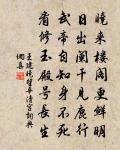 曉來樓閣更鮮明
日出闌干見鹿行
武帝自知身不死
看修玉殿號長生
王建曉望華清宮詞典
網